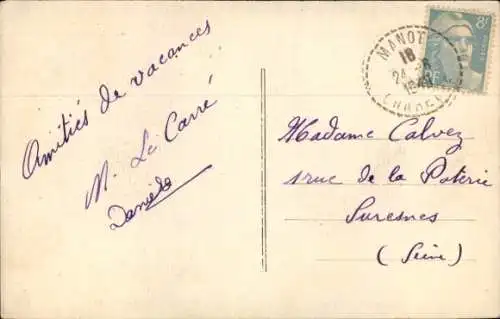 Amitiés de vacances
M. Le Carré
Danièle
MANOT
18
24
8F
Madame Calvez
1 rue de la Poterie
Suresnes
(Seine)